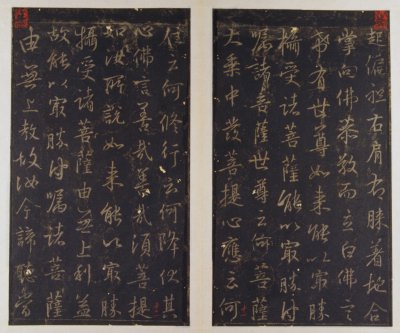 起偏袒右肩右膝著地合
掌向佛恭敬而立白佛言
希有世尊如來能以最勝
攝受諸菩薩能以最勝付
囑諸菩薩世尊云何菩薩
大乘中發菩提心應云何
住云何修行云何降伏其
心佛言善哉善哉須菩提
如汝所說如來能以最勝
攝受諸菩薩由無上利益
故能以最勝付囑諸菩薩
由無上教故汝今諦聽當